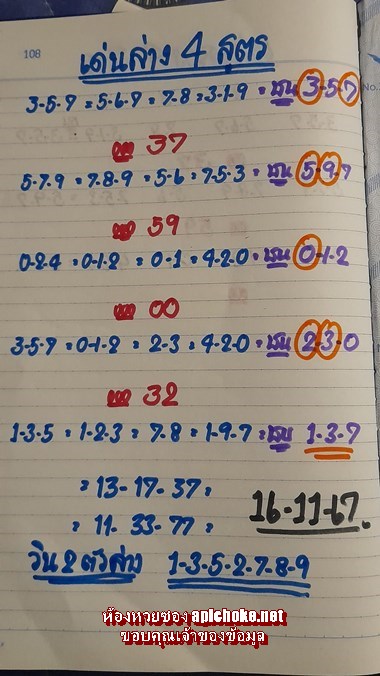 108
No.
เด่นล่าง 4 สูตร
3-5-9 = 5-6-7 = 7-8 = 3-1-9 = ชน 3-5-7
37
5-7-9 = 7-8-9 = 5-6 = 7-5-3 = ชน 5-9-7
59
0-2-4 = 0-1-2 = 0-1 = 4-2-0 = ชน 0-1-2
00
3-5-7 = 0-1-2 = 2-3 = 4-2-0 = ชน 2-3-0
32
1-3-5 = 1-2-3 = 7-8 = 1-9-7 = ชน 1-3-7
= 13-17-37 =
16-11-67.
= 11-33-77 =
วิน 2 ตัวล่าง 1-3-5-2-7-8-9
ห้องหวยซอง apichoke.net
ขอบคุณเจ้าของข้อมูล